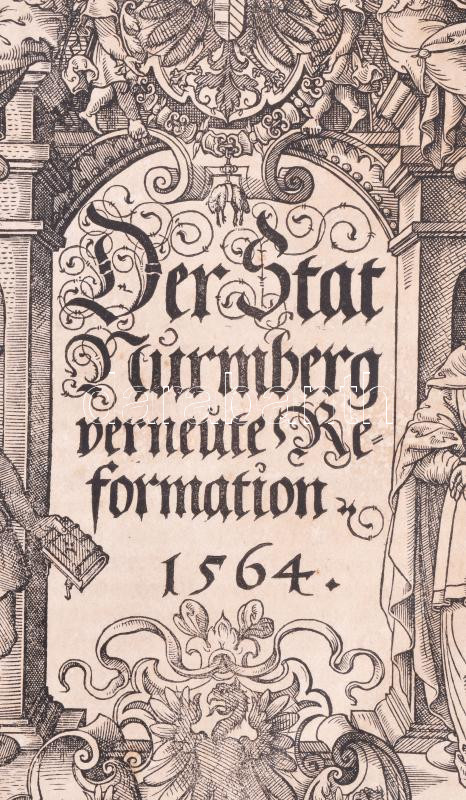 Der Stat
Nürmberg
verneute Re-
formation.
1564.